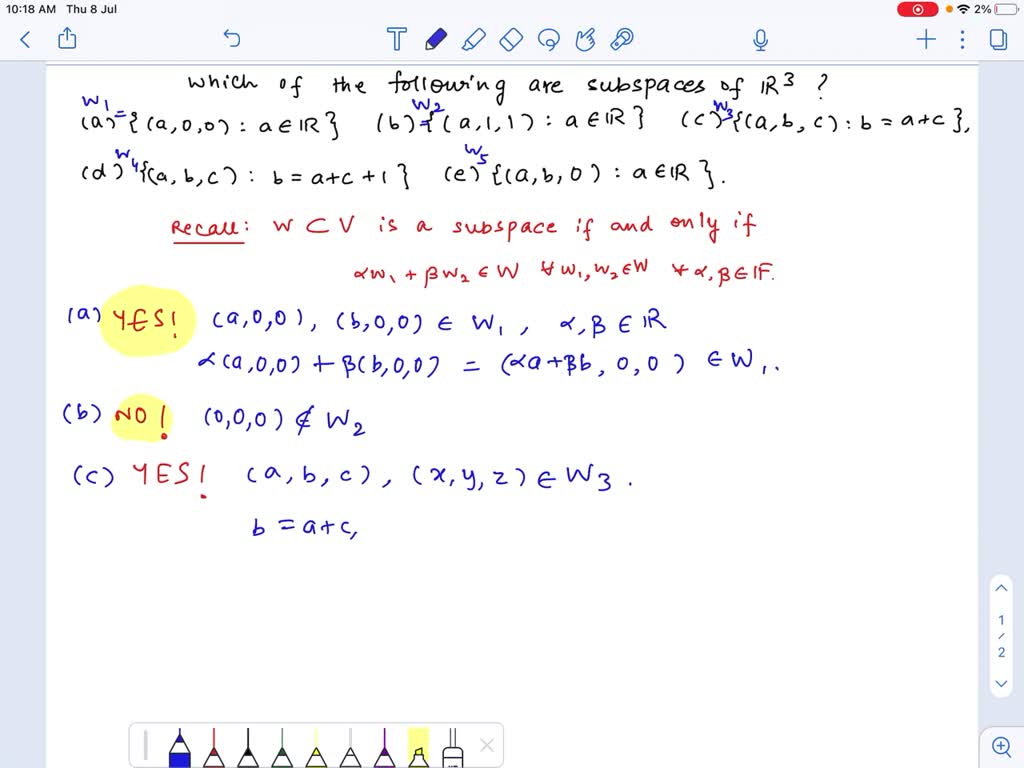 10:18 AM Thu 8 Jul 2%
which of the following are subspaces of ℝ³ ?
(a) W₁ = {(a,0,0) : a ∈ ℝ} (b) W₂ = {(a,1,1) : a ∈ ℝ} (c) W₃ {(a,b,c) : b = a+c},
(d) W₄ {(a,b,c) : b = a+c+1} (e) W₅ {(a,b,0) : a ∈ ℝ}.
Recall: W ⊂ V is a subspace if and only if
αw₁ + βw₂ ∈ W ∀ w₁, w₂ ∈ W ∀ α, β ∈ IF.
(a) YES! (a,0,0), (b,0,0) ∈ W₁, α, β ∈ ℝ
α(a,0,0) + β(b,0,0) = (αa+βb, 0, 0) ∈ W₁.
(b) NO! (0,0,0) ∉ W₂
(c) YES! (a, b, c), (x, y, z) ∈ W₃.
b = a+c,
1
/
2